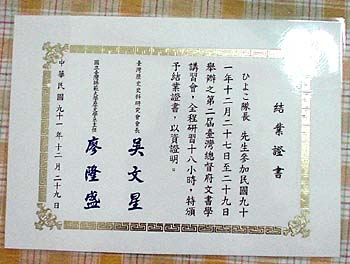 結業證書
ひよこ隊長　先生參加民國九十
一年十二月二十七日至二十九日
舉辦之第二屆臺灣總督府文書學
講習會，全程研習十八小時，特頒
予結業證書，以資證明。
臺灣歷史史料研究會會長
吳文星
國立臺灣師範大學歷史學系系主任
廖隆盛
中華民國九十一年十二月二十九日